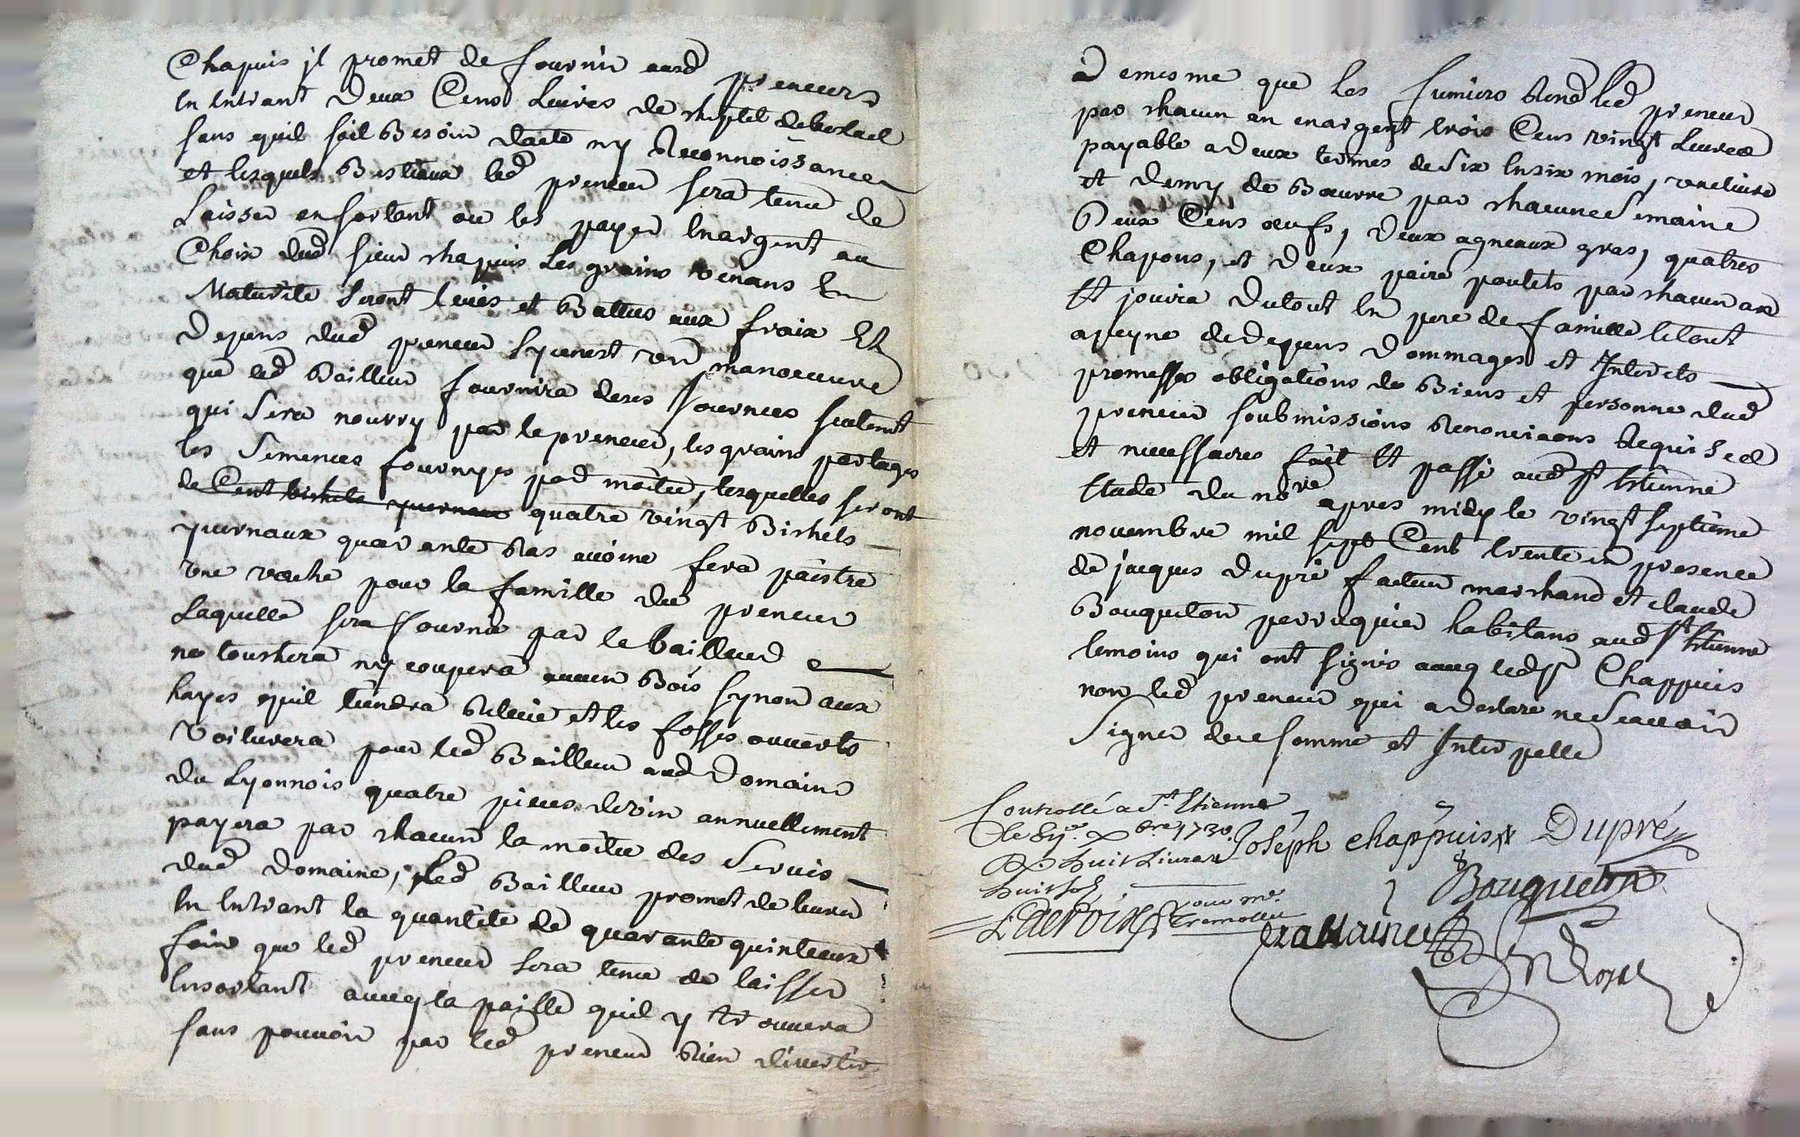 Chapuis jl promet de fournir aud preneurs
En Entrant Deux Cens Livres de cheptel de bestail
sans quil soit Besoin dacte ny Reconnoissance
et lesquels Bestiaux led preneur sera tenu de
Laisser en sortant ou les payer En argent au
Choix dud sieur chapuis Les grains venans En
Maturité seront leués et Battus aux fraix Et
Depens dud preneur sy cenest un manoeuure
que led Bailleur fournira deses Journees seulemt
qui sera nourry par lepreneur, les grains partages
les semences fournyes par moitié, lesquelles seront
de Cent bichets quatre vingt Bichets
quarante Ras auoine fera paistre
vne vache pour la famille du preneur
Laquelle sera fournie par le bailleur
ne touchera ny coupera aucun Bois synon aux
hayes quil tiendra Releué et les fossés ouuerts
Voiturera pour led Bailleur aud Domaine
du Lyonnois quatre pieces devin annuellement
payera par chacun la moitié des seruis
dud Domaine, led Bailleur promet de liurer
En Entrant la quantité de quarante quinteaux
foin que led preneur sera tenu de laisser
Ensortant auecq la paille quil y trouuera
sans pouuoir par led preneur Rien diuertir
Demesme que les fumiers Rend led preneur
par chacun an enargent trois Cens vingt Liures
payable adeux termes desix Ensix mois, vneliure
et demy de Beurre par chacune semaine
Deux Cens oeufs, Deux agneaux gras, quatres
Chapons, et Deux paire poulets par chacun an
Et jouira Dutout En pere de famille letout
apeyne dedepens Dommages et Interets
promesses obligations de Biens et personne dud
preneur soubmissions Renonciaons Requises
et necessaires fait Et passé aud St Etienne
Etude du nore apres midy le vingt septieme
novembre mil sept Cent trente en presence
de jacques Dupré facteur marchand et claude
Bouqueton perruquier habitans aud St Etienne
temoins qui ont signés auecq led Sr Chappuis
non led preneur qui a declaré ne scauoir
Signer de ce sommé et Interpellé
Controllé a St. Etienne
le 8bre 1730
Rx huit Liures
huit sols
Delacroix
Joseph chappuis
Dupré
Bouqueton